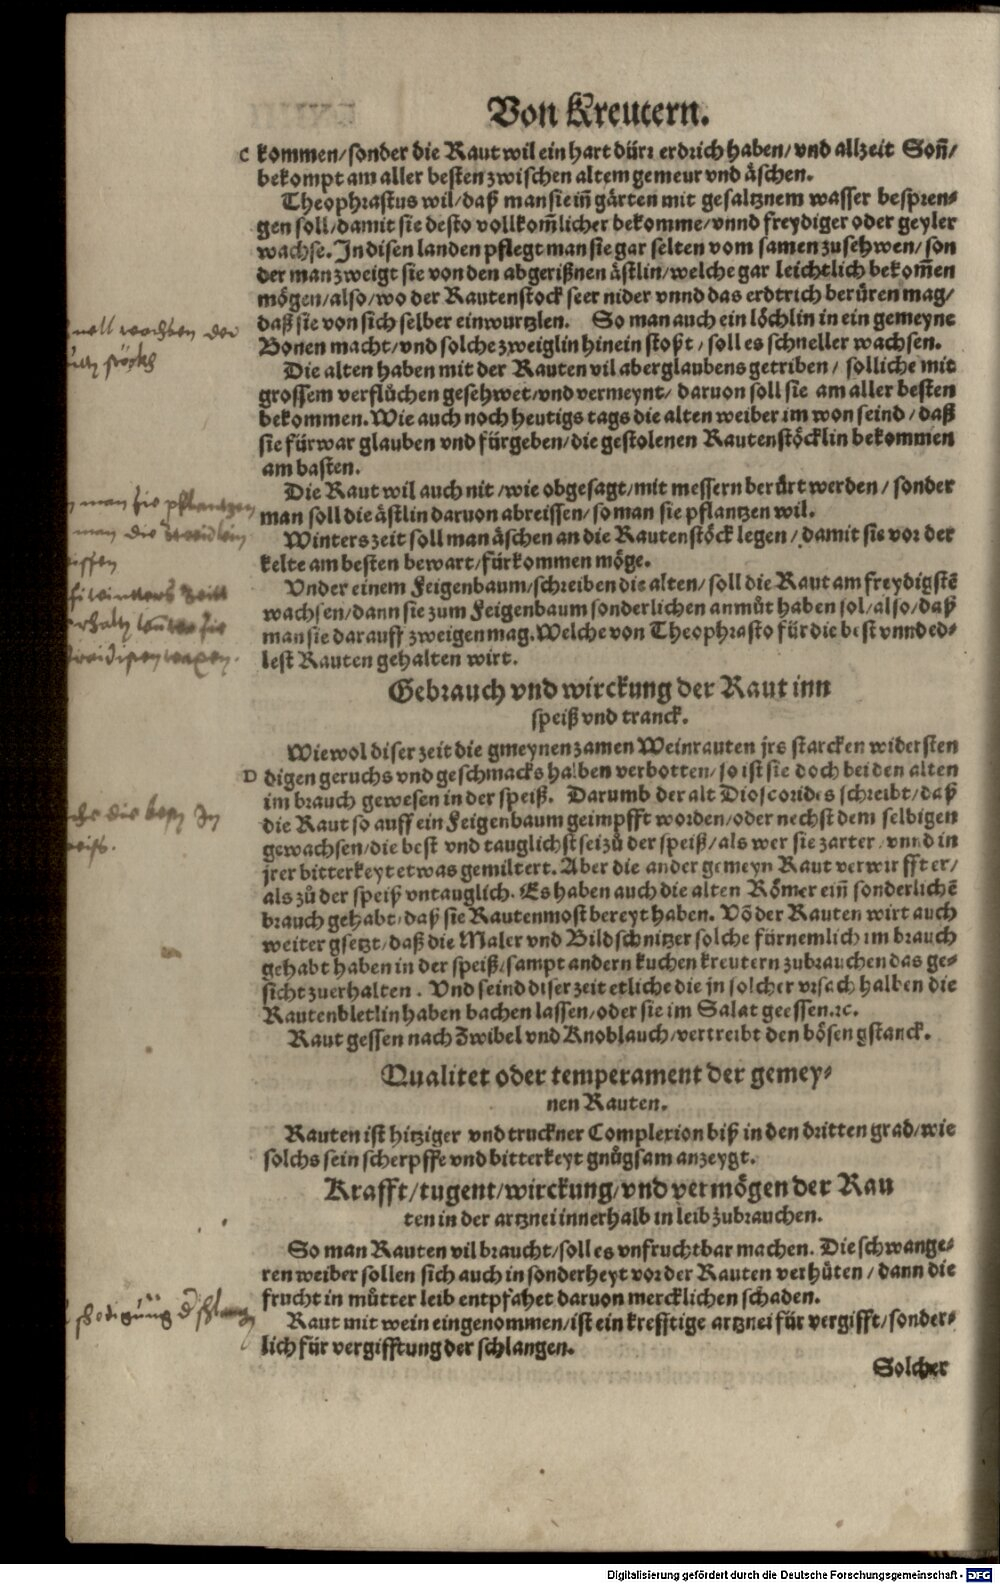 Von Kreutern.
C kommen/sonder die Raut wil ein hart dürr erdrich haben/vnd allzeit Soñ/
bekompt am aller besten zwischen altem gemeur vnd äschen.
Theophrastus wil/daß man sie iñ gärten mit gesaltznem wasser bespren-
gen soll/damit sie desto vollkom̃licher bekomme/vnnd freydiger oder geyler
wachse. In disen landen pflegt man sie gar selten vom samen zu sehwen/son
der man zweigt sie von den abgerißnen ästlin/welche gar leichtlich bekom̃en
mögen/also/wo der Rautenstock seer nider vnnd das erdtrich berüren mag/
daß sie von sich selber einwurtzlen. So man auch ein löchlin in ein gemeyne
Bonen macht/vnd solche zweiglin hinein stoßt/soll es schneller wachsen.
Die alten haben mit der Rauten vil aberglaubens getriben/solliche mit
grossem verflüchen gesehwet/vnd vermeynt/daruon soll sie am aller besten
bekommen. Wie auch noch heutigs tags die alten weiber im won seind/daß
sie fürwar glauben vnd fürgeben/die gestolenen Rautenstöcklin bekommen
am basten.
Die Raut wil auch nit/wie obgesagt/mit messern berürt werden/sonder
man soll die ästlin daruon abreissen/so man sie pflantzen wil.
Winters zeit soll man äschen an die Rautenstöck legen/damit sie vor der
kelte am besten bewart/fürkommen möge.
Vnder einem Feigenbaum/schreiben die alten/soll die Raut am freydigstẽ
wachsen/dann sie zum Feigenbaum sonderlichen anmůt haben sol/also/daß
man sie darauff zweigen mag. Welche von Theophrasto für die best vnnd ed-
lest Rauten gehalten wirt.
Gebrauch vnd wirckung der Raut inn
speiß vnd tranck.
Wiewol diser zeit die gmeynen zamen Weinrauten jrs starcken widersten
D digen geruchs vnd geschmacks halben verbotten/so ist sie doch bei den alten
im brauch gewesen in der speiß. Darumb der alt Dioscorides schreibt/daß
die Raut so auff ein Feigenbaum geimpfft worden/oder nechst dem selbigen
gewachsen/die best vnd tauglichst sei zů der speiß/als wer sie zarter/vnnd in
jrer bitterkeyt etwas gemiltert. Aber die ander gemeyn Raut verwirfft er/
als zů der speiß vntauglich. Es haben auch die alten Römer eiñ sonderlichẽ
brauch gehabt/daß sie Rautenmost bereyt haben. Võ der Rauten wirt auch
weiter gsetzt/daß die Maler vnd Bildschnitzer solche fürnemlich im brauch
gehabt haben in der speiß/sampt andern kuchen kreutern zubrauchen das ge-
sicht zuerhalten. Vnd seind diser zeit etliche die jn solcher vrsach halben die
Rautenbletlin haben bachen lassen/oder sie im Salat geessen.ꝛc.
Raut gessen nach Zwibel vnd Knoblauch/vertreibt den bösen gstanck.
Qualitet oder temperament der gemey-
nen Rauten.
Rauten ist hitziger vnd truckner Complexion biß in den dritten grad/wie
solchs sein scherpffe vnd bitterkeyt gnůgsam anzeygt.
Krafft/tugent/wirckung/vnd vermögen der Rau
ten in der artznei innerhalb in leib zubrauchen.
So man Rauten vil braucht/soll es vnfruchtbar machen. Die schwange-
ren weiber sollen sich auch in sonderheyt vor der Rauten verhüten/dann die
frucht in můtter leib entpfahet daruon mercklichen schaden.
Raut mit wein eingenommen/ist ein krefftige artznei für vergifft/sonder-
lich für vergifftung der schlangen.
Solcher
wachsen der
man sie pflantzen
man die
winters zeitt
Digitalisierung gefördert durch die Deutsche Forschungsgemeinschaft - DFG